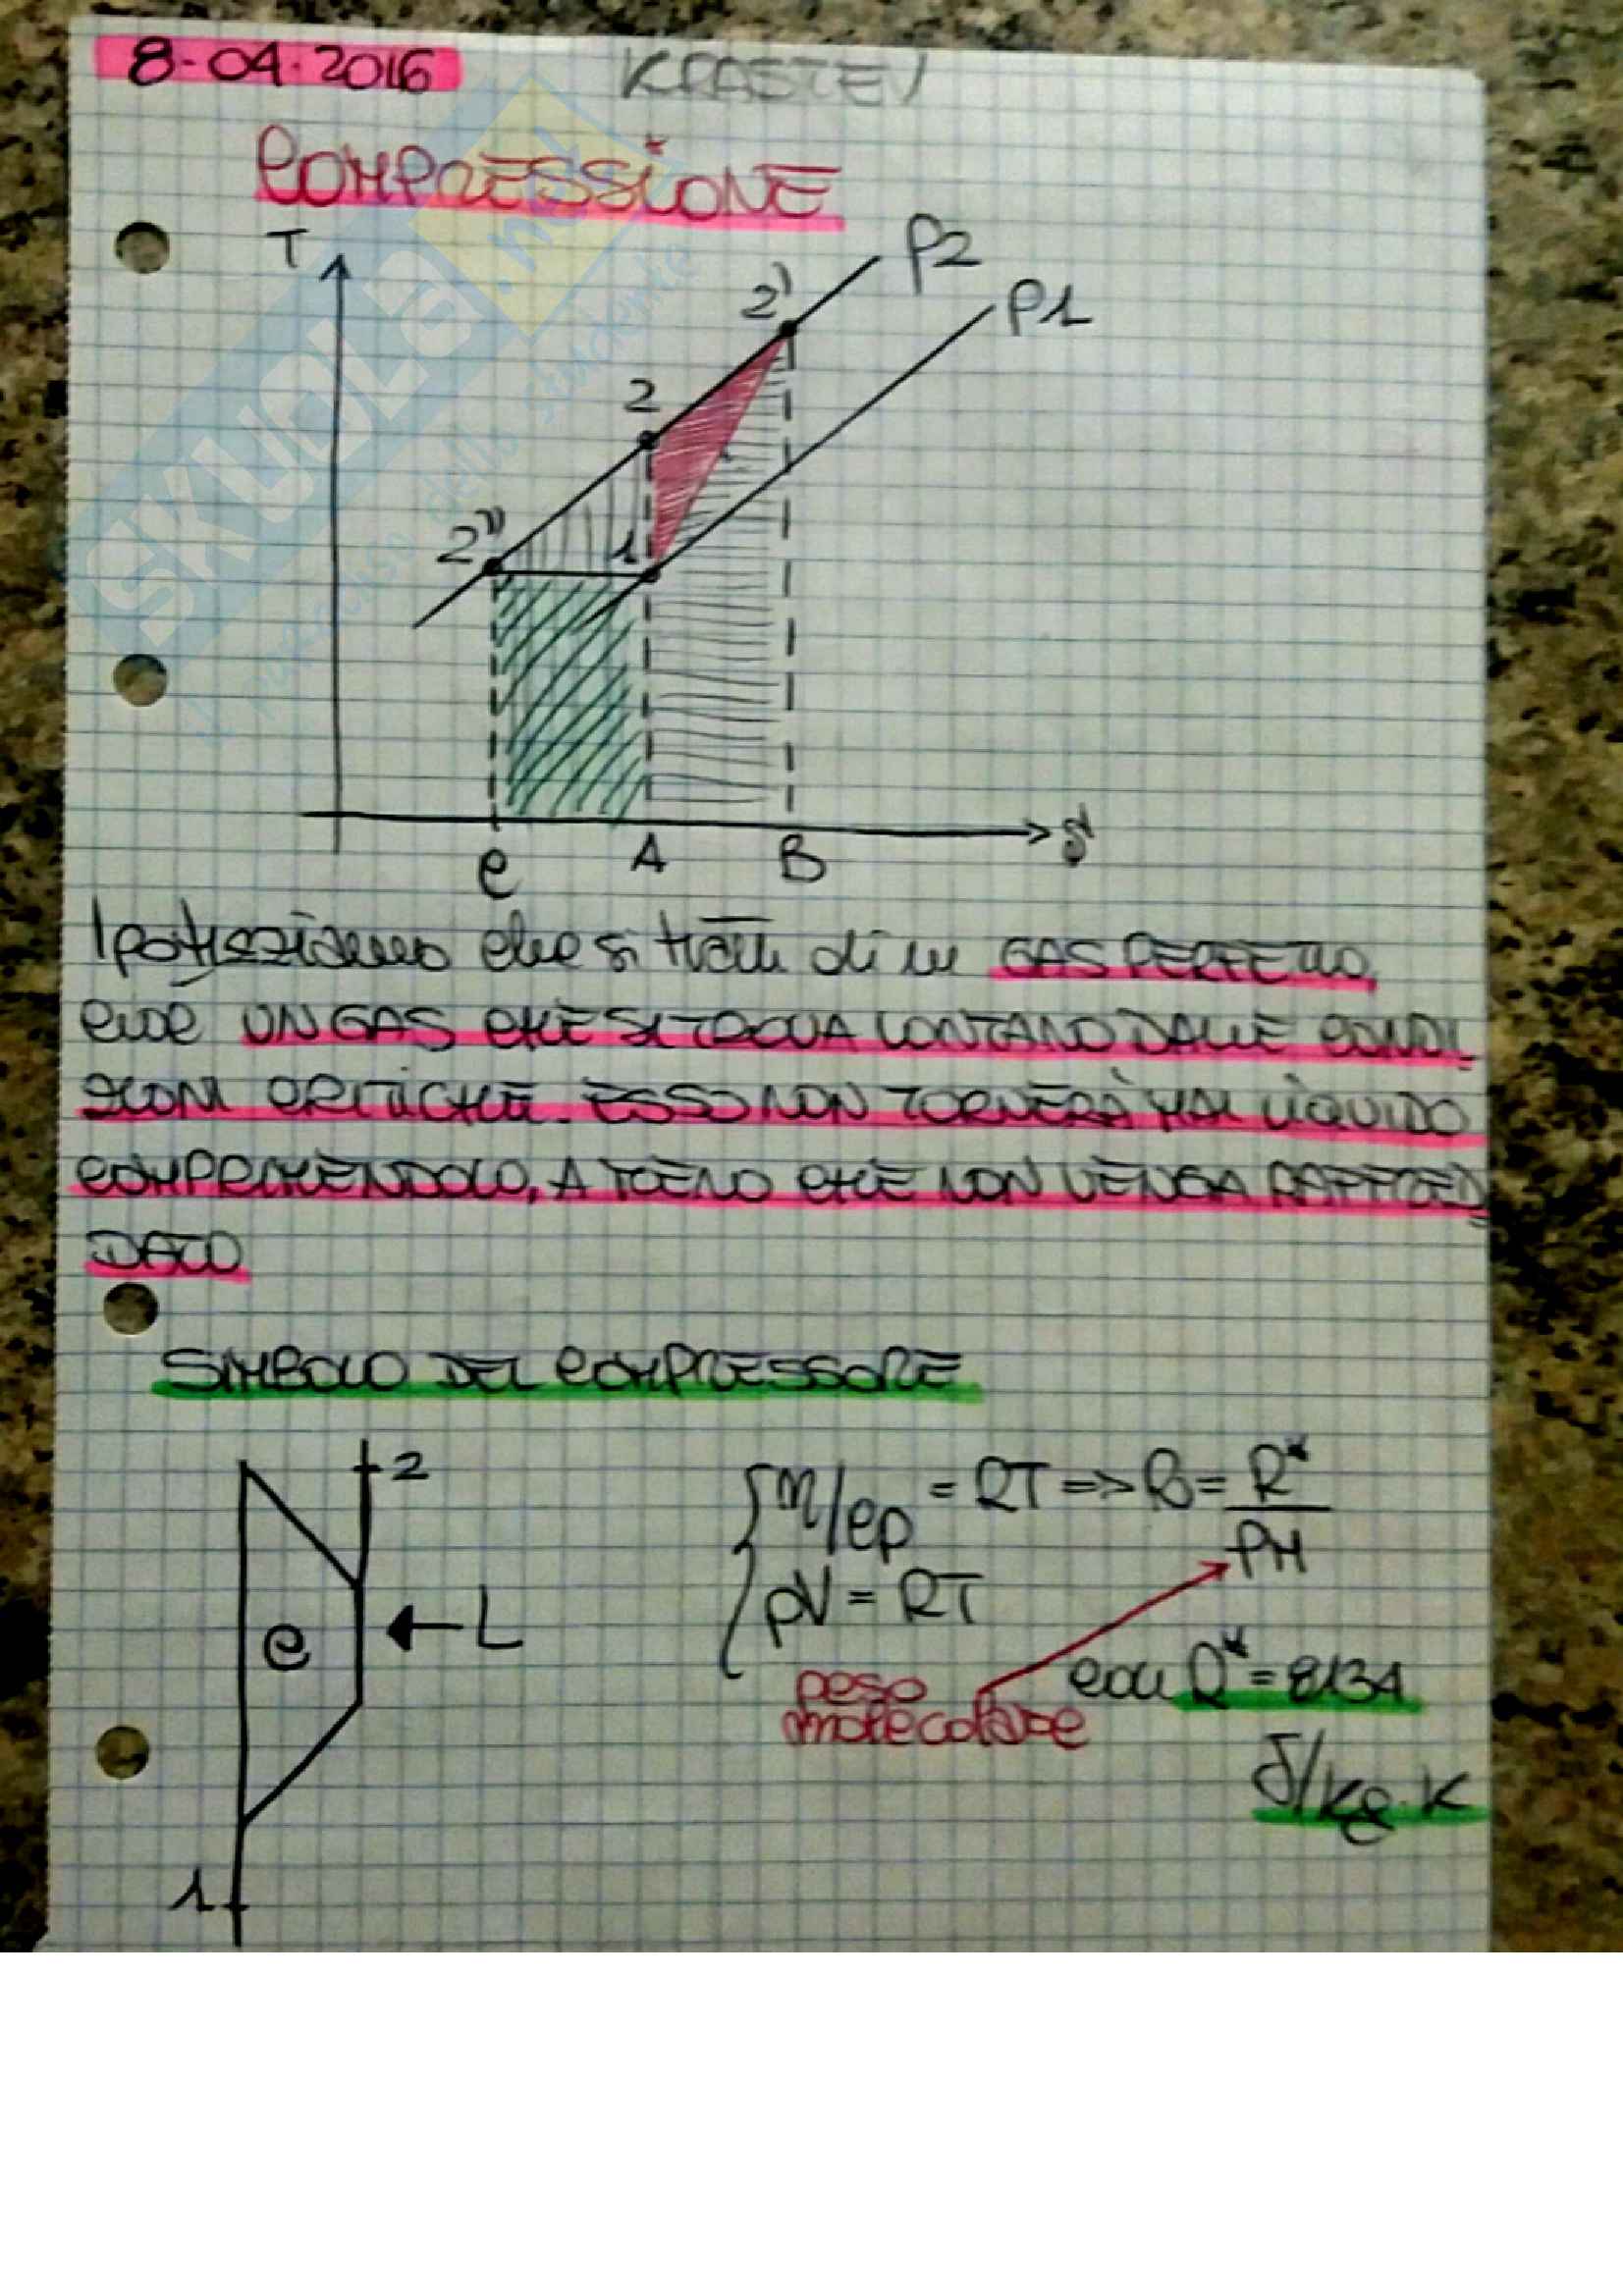 8-04-2016 KRASTEV
COMPRESSIONE
T
p2
p1
2'
2
2"
1
C A B S
Ipotizziamo che si tratti di un GAS PERFETTO,
cioè UN GAS CHE SI TROVA LONTANO DALLE CONDI
ZIONI CRITICHE. ESSO NON TORNERÀ MAI LIQUIDO
COMPRIMENDOLO, A MENO CHE NON VENGA RAFFRED
DATO
SIMBOLO DEL COMPRESSORE
2
C
← L
1
= RT => R = R*/PM
pV = RT
peso
molecolare
con R* = 8134
J/kg·K
SKUOLA.net